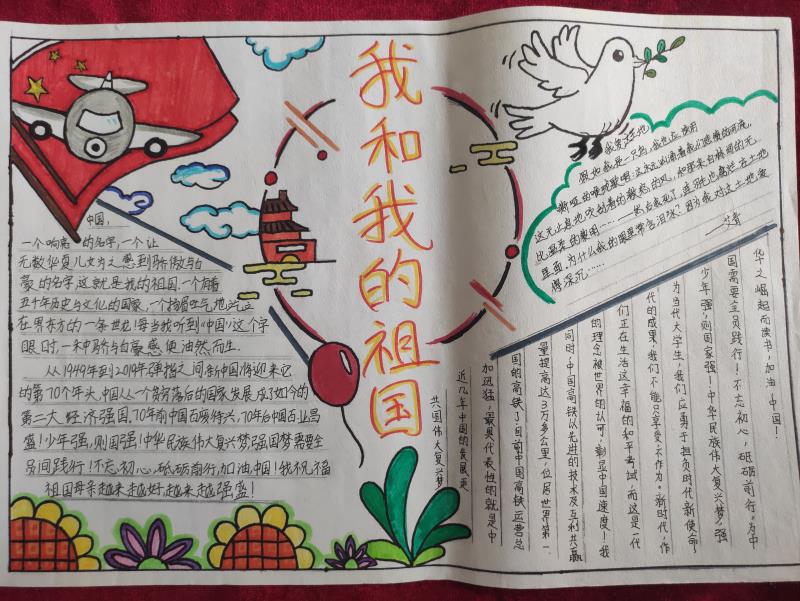 我和我的祖国
中国,
一个响亮的名字,一个让
无数华夏儿女为之感到骄傲与自
豪的名字,这就是我的祖国.一个有着
五千年历史与文化的国家,一个扬眉吐气地屹立
在世界东方的一条世龙!每当我听到"中国"这个字
眼时,一种骄与自豪感便油然而生.
从1949年到2019年弹指之间新中国将迎来它
的第70个年头,中国从一个贫穷落后的国家发展成了如今的
第二大经济强国.70年前中国百废待兴,70年后中国百业昌
盛!少年强,则国强!中华民族伟大复兴梦,强国梦需要全
员间践行!不忘初心,砥砺前行,加油,中国!我祝福
祖国母亲越来越好,越来越强盛!
我爱这土地
假如我是一只鸟,我也应该用
嘶哑的喉咙歌唱:这被暴风雨
这无止息地吹刮着的激怒的风,和那来自林间的无
比温柔的黎明……——然后我死了,连羽毛也腐烂在土地
里面.为什么我的眼里常含泪水?因为我对这土地爱
得深沉……
艾青
共国伟大复兴梦
近几年中国的发展更
加迅猛,最具代表性的就是中
国的高铁了!目前中国高铁运营总
量提高达3万多公里,位居世界第一
同时,中国高铁以先进的技术及互利共赢
的理念被世界的认可,彰显中国速度!我
们正在生活这幸福的和平考试,而这是一代
代的成果,我们不能只享受不作为.新时代,作
为当代大学生,我们应勇于担负时代新使命
少年强,则国家强!中华民族伟大复兴梦,强
国需要全员践行!不忘初心,砥砺前行,为中
华之崛起而读书,加油,中国!